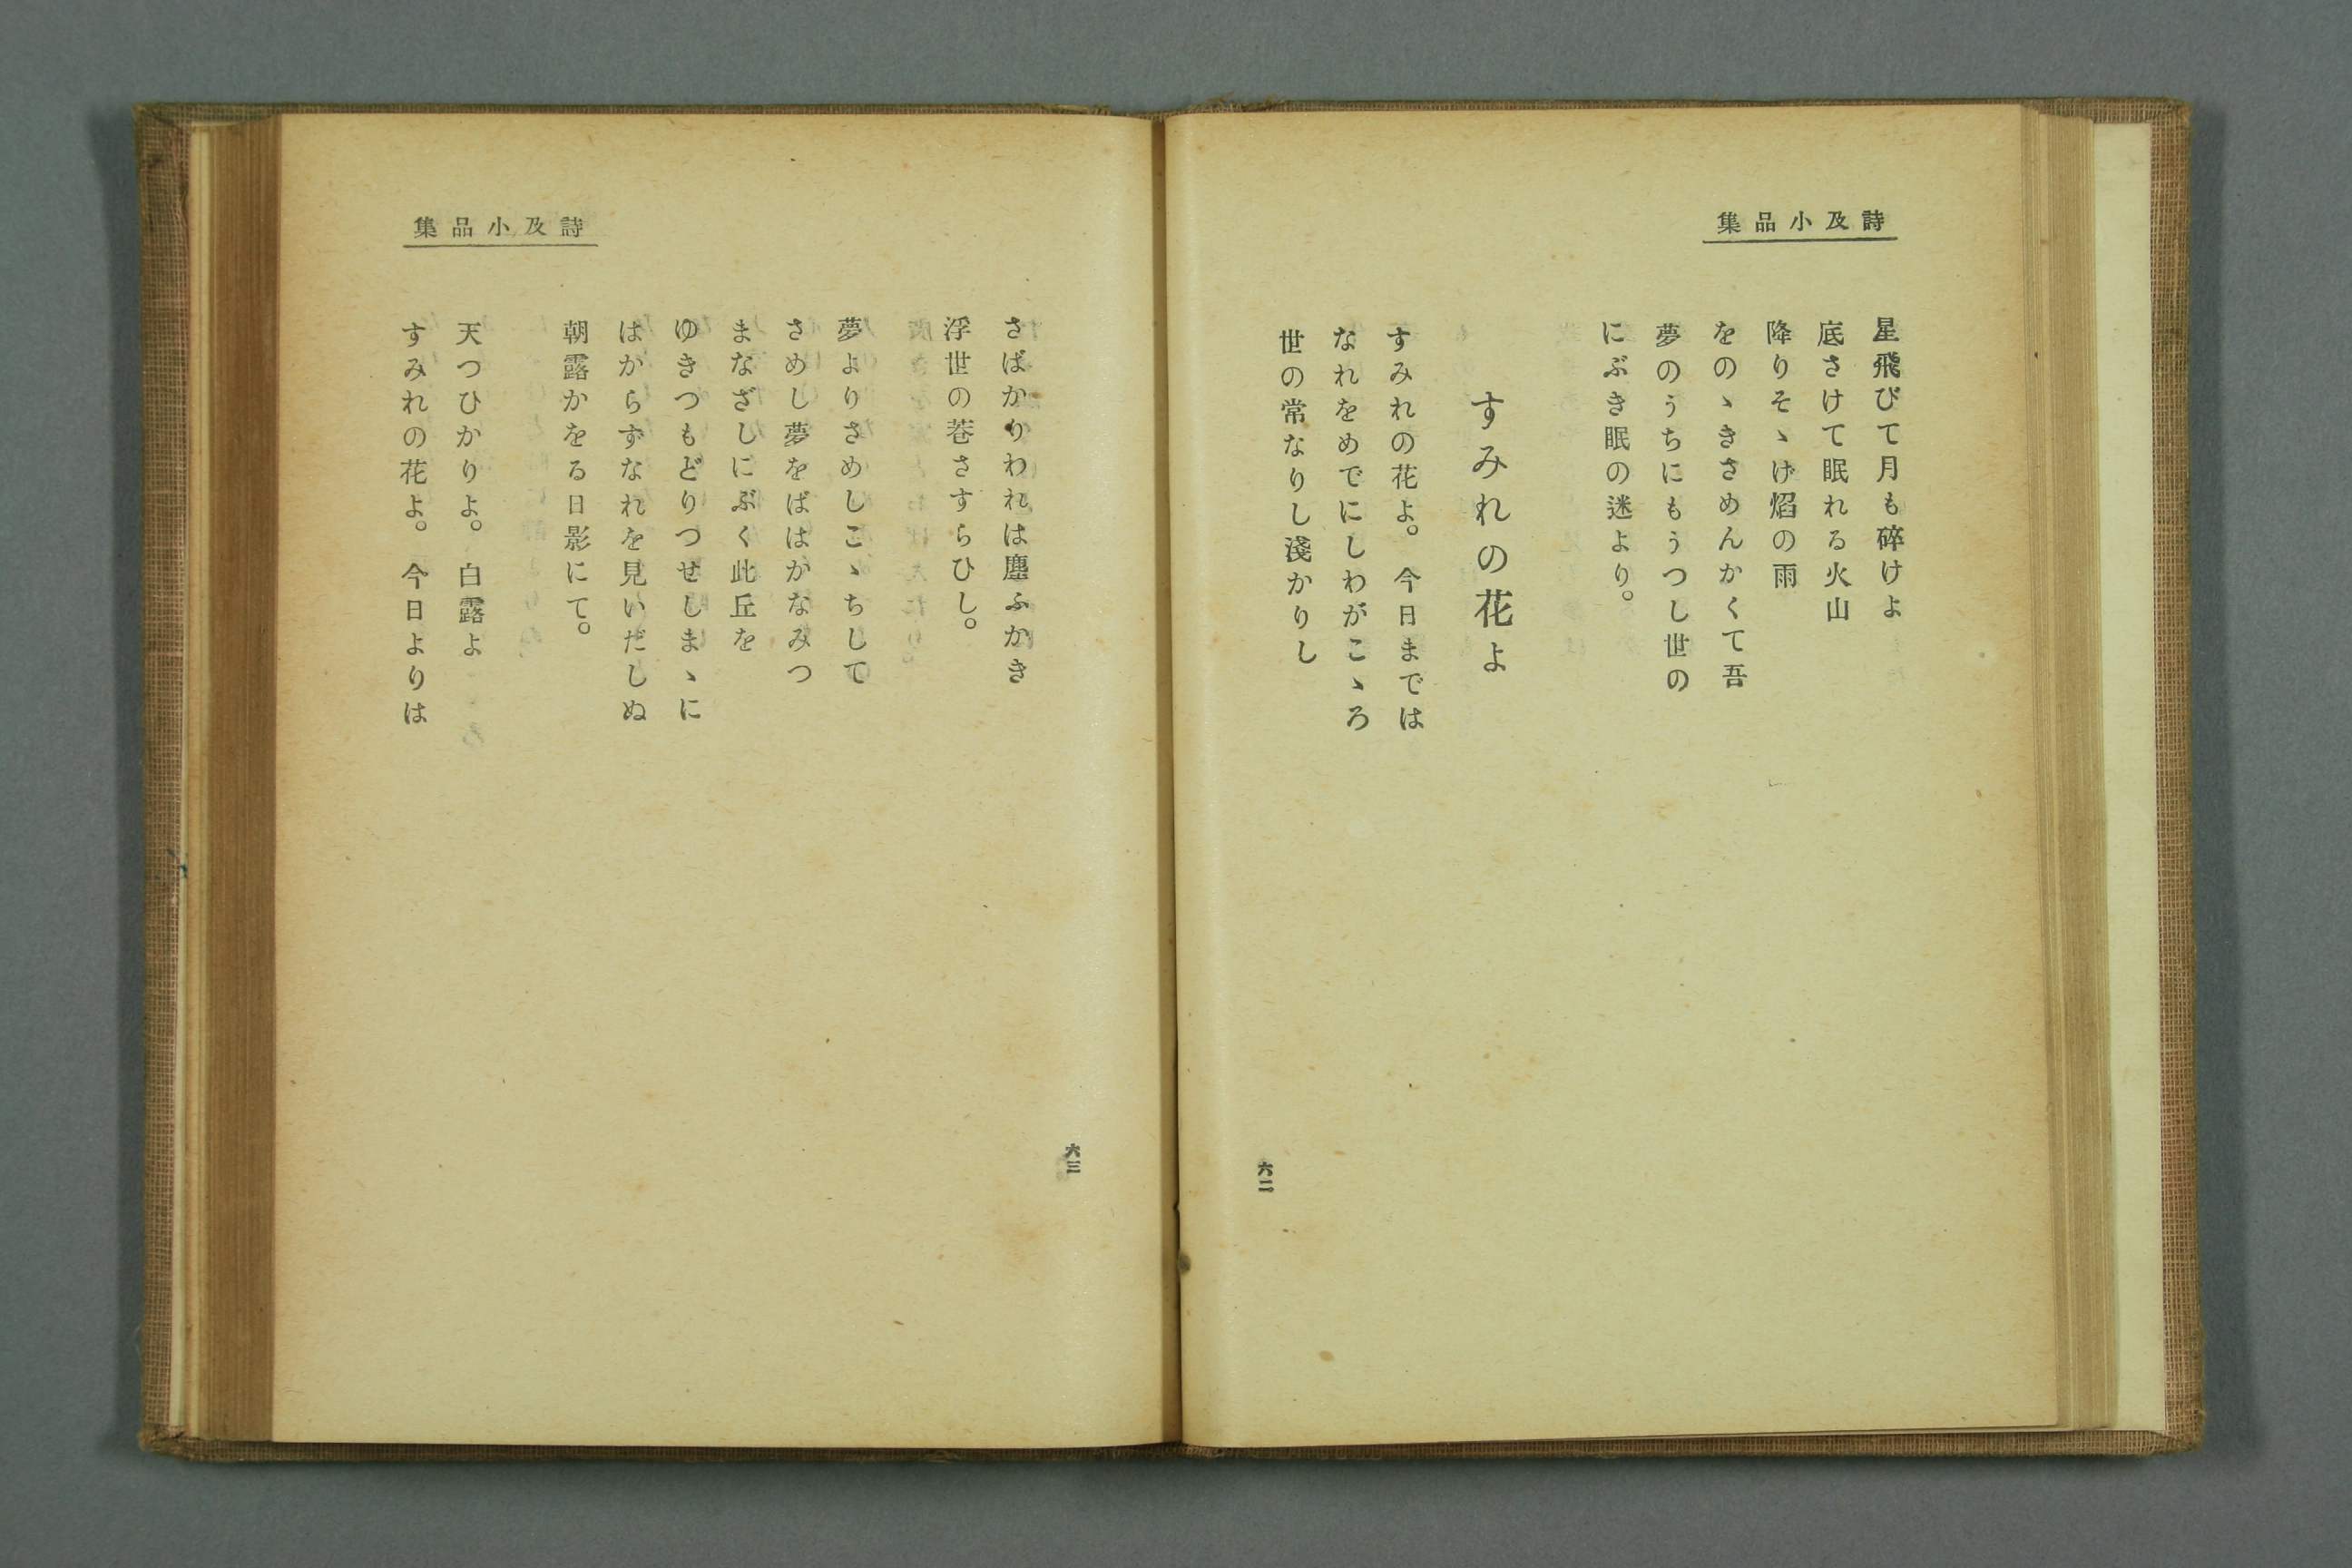 詩及小品集
星飛びて月も碎けよ
底さけて眠れる火山
降りそゝげ焰の雨
をのゝきさめんかくて吾
夢のうちにもうつし世の
にぶき眠の迷より。
すみれの花よ
すみれの花よ。今日までは
なれをめでにしわがこゝろ
世の常なりし淺かりし
六二
詩及小品集
さばかりわれは塵ふかき
浮世の巷さすらひし。
夢よりさめしこゝちして
さめし夢をばはかなみつ
まなざしにぶく此丘を
ゆきつもどりつせしまゝに
はからずなれを見いだしぬ
朝露かをる日影にて。
天つひかりよ。白露よ
すみれの花よ。今日よりは
六三